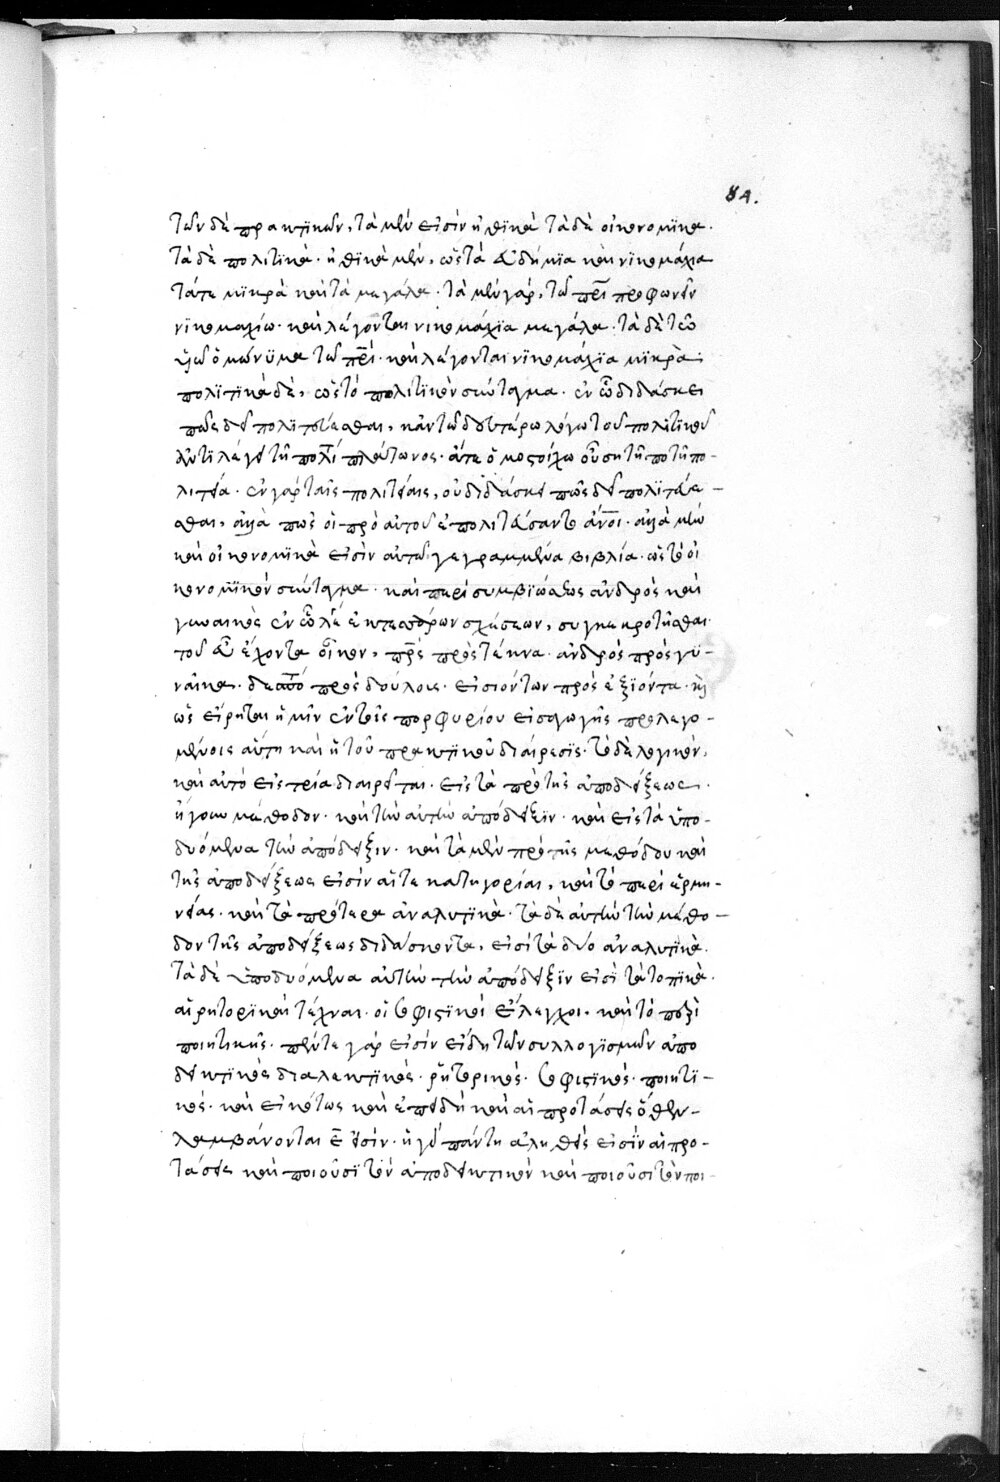 84.
τῶν δὲ πρακτϊκῶν, τὰ μέν εἰσὶν ἠθϊκὰ τὰ δὲ οἰκονομϊκα.
τὰ δὲ πολιτϊκὰ· ἠθϊκὰ μὲν, ὡς τὰ εὐδήμϊα καὶ νϊκομάχια
τάτε μϊκρὰ καὶ τὰ μεγάλα· τὰ μὲν γὰρ, τῶ πρϊ προφωνεῖ
νϊκομαχίω· καὶ λέγονται νικομάχϊα μεγάλα· τὰ δὲ τῶ
υἱῶ ὁμωνύμω τῶ πρϊ· καὶ λέγονται νϊκομάχϊα μϊκρὰ·
πολϊτϊκὰ δὲ, ὡς τό πολιτϊκὸν σύνταγμα· ἐν ὧ διδάσκει
πῶς δεῖ πολϊτεύεσθαι, κἀν τῶ δευτέρω λόγω τοῦ πολϊτϊκοῦ
ἀντϊλέγει τῆ πολϊ πλάτωνος· ἅτε ὁμοστοίχω οὔση τῆ ποτῆ πο-
λιτεία· ἐν γὰρ ταῖς πολιτείαις, οὐ διδάσκει πῶς δεῖ πολϊτεύε-
σθαι, ἀλλὰ πῶς οἱ πρὸ αὐτοῦ ἐπολιτεύσαντο ἄνοι· ἀλλὰ μὴν
καὶ οἰκονομϊκὰ εἰσὶν αὐτῶ γεγραμμένα βιβλία· ὡς τὸ οἰ
κονομϊκὸν σύνταγμα· καὶ περὶ συμβϊώσεως ἀνδρὸς καὶ
γυναικὸς ἐν ὧ λέγει ἐκ τεσσάρων σχέσεων, συγκεκροτῆσθαι
τοῦ εὖ ἔχοντα οἶκον, πρς πρὸς τέκνα· ἀνδρὸς πρὸς γυ-
ναῖκα· δεσπό πρὸς δούλους· εἰσιόντων πρὸς ἐξϊόντα· κ
ὡς εἴρηται ἡμῖν ἐν τοῖς πορφυρίου εἰσαγωγῆς προλεγο-
μένοις αὕτη καὶ ἡ τοῦ πρακτϊκοῦ διαίρεσϊς· τὸ δὲ λογικὸν,
καὶ αὐτὸ εἰς τρία διαιρεῖται· εἰς τὰ πρὸ τῆς ἀποδείξεως·
ἤγουν μέθοδον· καὶ τὴν αὐτὴν ἀπόδειξϊν· καὶ εἰς τὰ ὑπο-
δυόμενα τὴν ἀπόδειξιν· καὶ τὰ μὲν πρὸ τῆς μεθόδου καὶ
τῆς ἀποδείξεως εἰσὶν αἵτε κατηγορίαι, καὶ τὸ περὶ ἑρμη-
νείας· καὶ τὰ πρότερα ἀναλυτϊκὰ· τὰ δὲ αὐτὴν τὴν μέθο-
δον τῆς ἀποδείξεως διδάσκοντα, εἰσὶ τὰ δύο ἀναλυτϊκὰ.
τὰ δὲ ὑποδυόμενα αὐτὴν τὴν ἀπόδειξϊν εἰσὶ τὰ τοπϊκὰ·
αἱ ρητορϊκαὶ τέχναι· οἱ σοφιστϊκοὶ ἔλεγχοι· καὶ τὸ περὶ
ποιητικῆς· πέντε γάρ εἰσὶν εἴδη τῶν συλλογϊσμῶν ἀπο
δεικτϊκὸς διαλεκτϊκὸς· ρητορικὸς· σοφιστϊκὸς· ποιητϊ-
κὸς· καὶ εἰκότως καὶ ἐπειδὴ καὶ αἱ προτάσεις ὅθεν-
λαμβάνονται ε εἰσὶν· ἢ γὰρ πάντη ἀληθεῖς εἰσὶν αἱ προ-
τάσεις καὶ ποιοῦσϊ τὸν ἀποδεικτικὸν καὶ ποιοῦσι τὸν ποι-